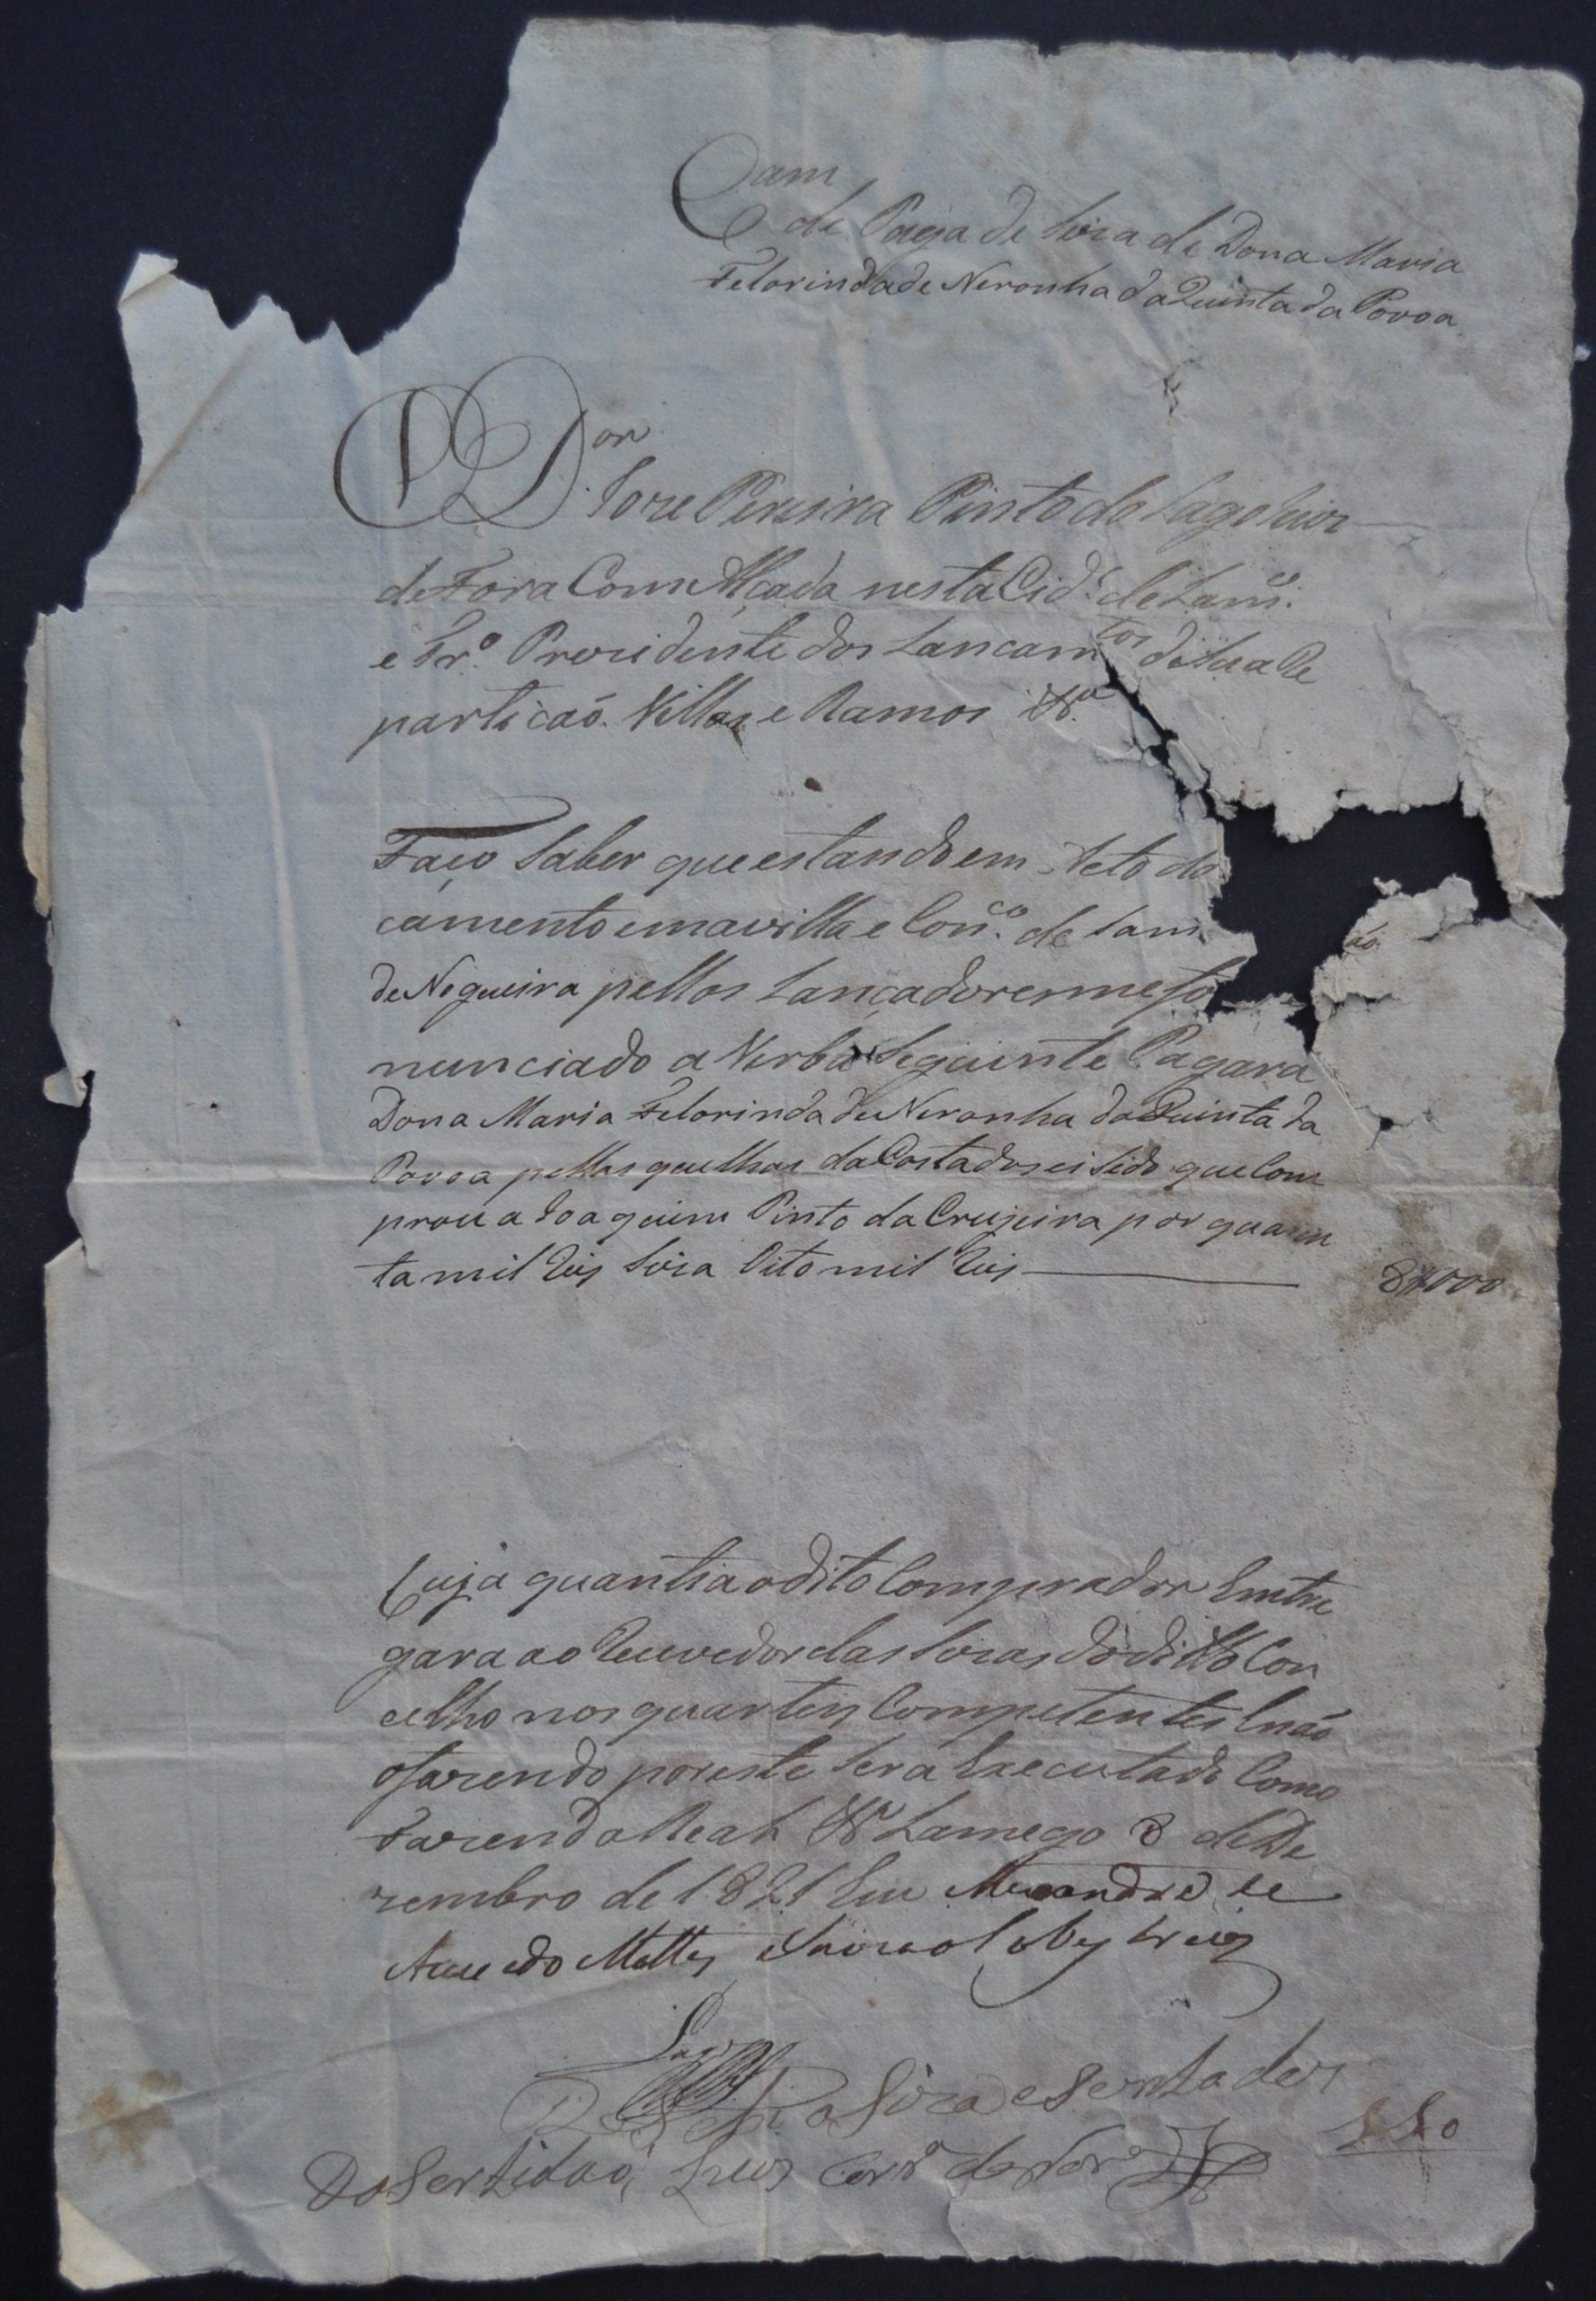 Cam
de Paga de Siza de Dona Maria
Felorinda de Neronha da Quinta da Povoa
O D.or
Joze Pereira Pinto do Lago Juiz
de Fora Com Alçada nesta Cid.e de Lam.co
e Pr.o Prezidente dos Lancam.tos de Sua Re
particaõ Villas e Ramos &.a
Faço Saber que estando em Acto do
camento em a villa e Con.co de Sam
de Nogueira pellos Lançadores me fo
nunciado a Verba Seguinte Pagara
Dona Maria Felorinda de Neronha da Quinta da
Povoa pellas quelhas da Costa do que Com
prou a Joaquim Pinto da Cruzeira por quaren
ta mil Reis Siza Oito mil Reis 8$000
Cuja quantia o dito Comprador Entre
gara ao Recevedor das Sizas do ditto Con
celho nos quarteis Competentes E naõ
o fazendo por este Sera Executado Como
Fazenda Real &.a Lamego 8 de De
zembro de 1821 Eu Alexandre de
Azevedo Mattos
Lago
a Siza e Sertadez
Da Sertidaõ